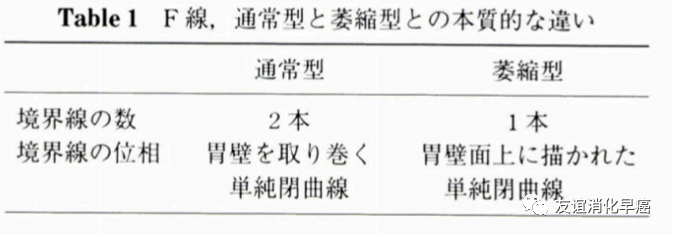 Table 1 F線，通常型と萎縮型との本質的な違い
通常型 萎縮型
境界線の数 2本 1本
境界線の位相 胃壁を取り巻く 胃壁面上に描かれた
単純閉曲線 単純閉曲線
友谊消化早癌